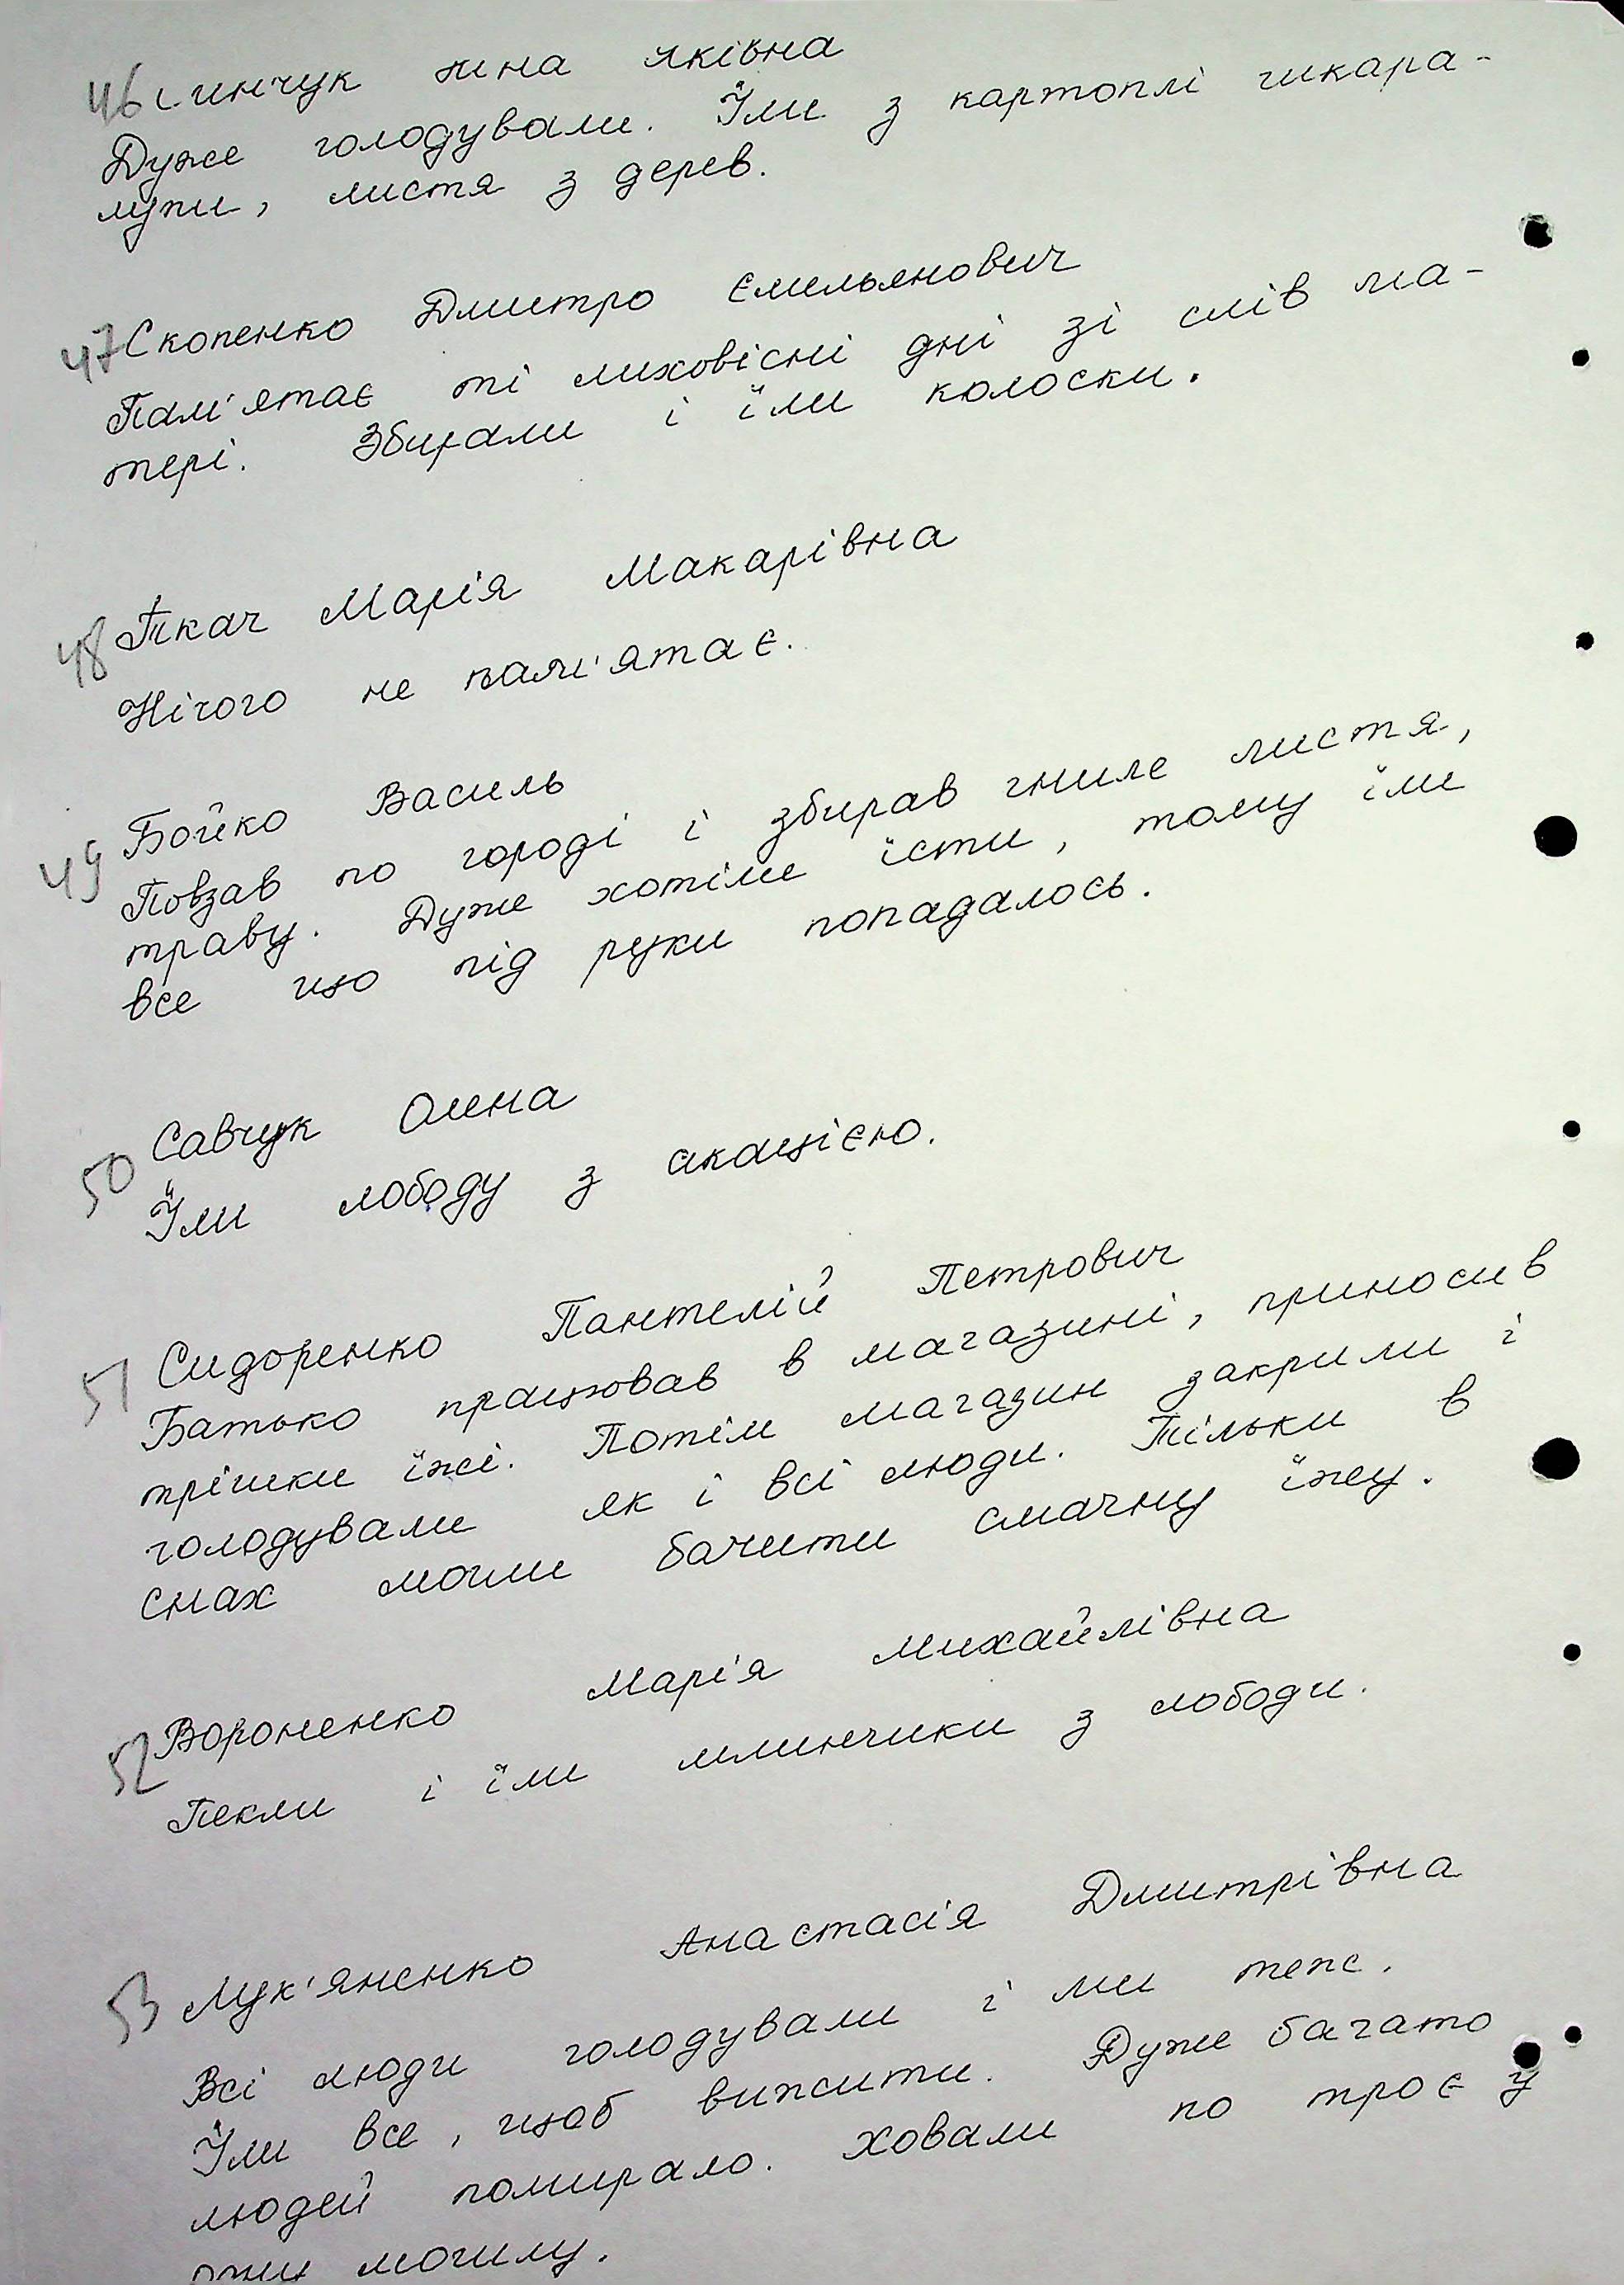 46 Яківна
Дуже голодували. Їли з картоплі шкара-
лупи, листя з дерев.
47 Скопенко Дмитро Ємельянович
Пам'ятає ті лиховісні дні зі слів ма-
тері. Збирали і їли колоски.
48 Ткач Марія Макарівна
Нічого не пам'ятає.
49 Бойко Василь
Повзав по городі і збирав гниле листя,
траву. Дуже хотіли їсти, тому їли
все що під руки попадалось.
50 Савчук Олена
Їли лободу з акацією.
51 Сидоренко Пантелій Петрович
Батько працював в магазині, приносив
трішки їжі. Потім магазин закрили і
голодували як і всі люди. Тільки в
снах могли бачити смачну їжу.
52 Вороненко Марія Михайлівна
Пекли і їли млинчики з лободи.
53 Лук'яненко Анастасія Дмитрівна
Всі люди голодували і ми теж.
Їли все, щоб вижити. Дуже багато
людей помирало. Ховали по троє у
одну могилу.